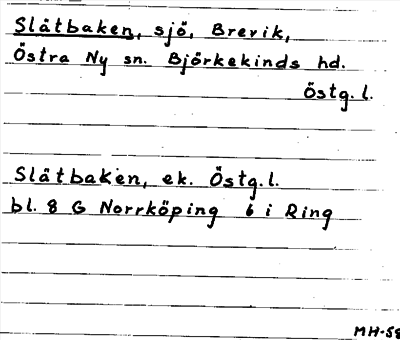 Slätbaken, sjö, Brevik,
Östra Ny sn. Björkekinds hd.
Östg. l.
Slätbaken, ek. Östg. l.
bl. 8 G Norrköping 6 i Ring
MH-58